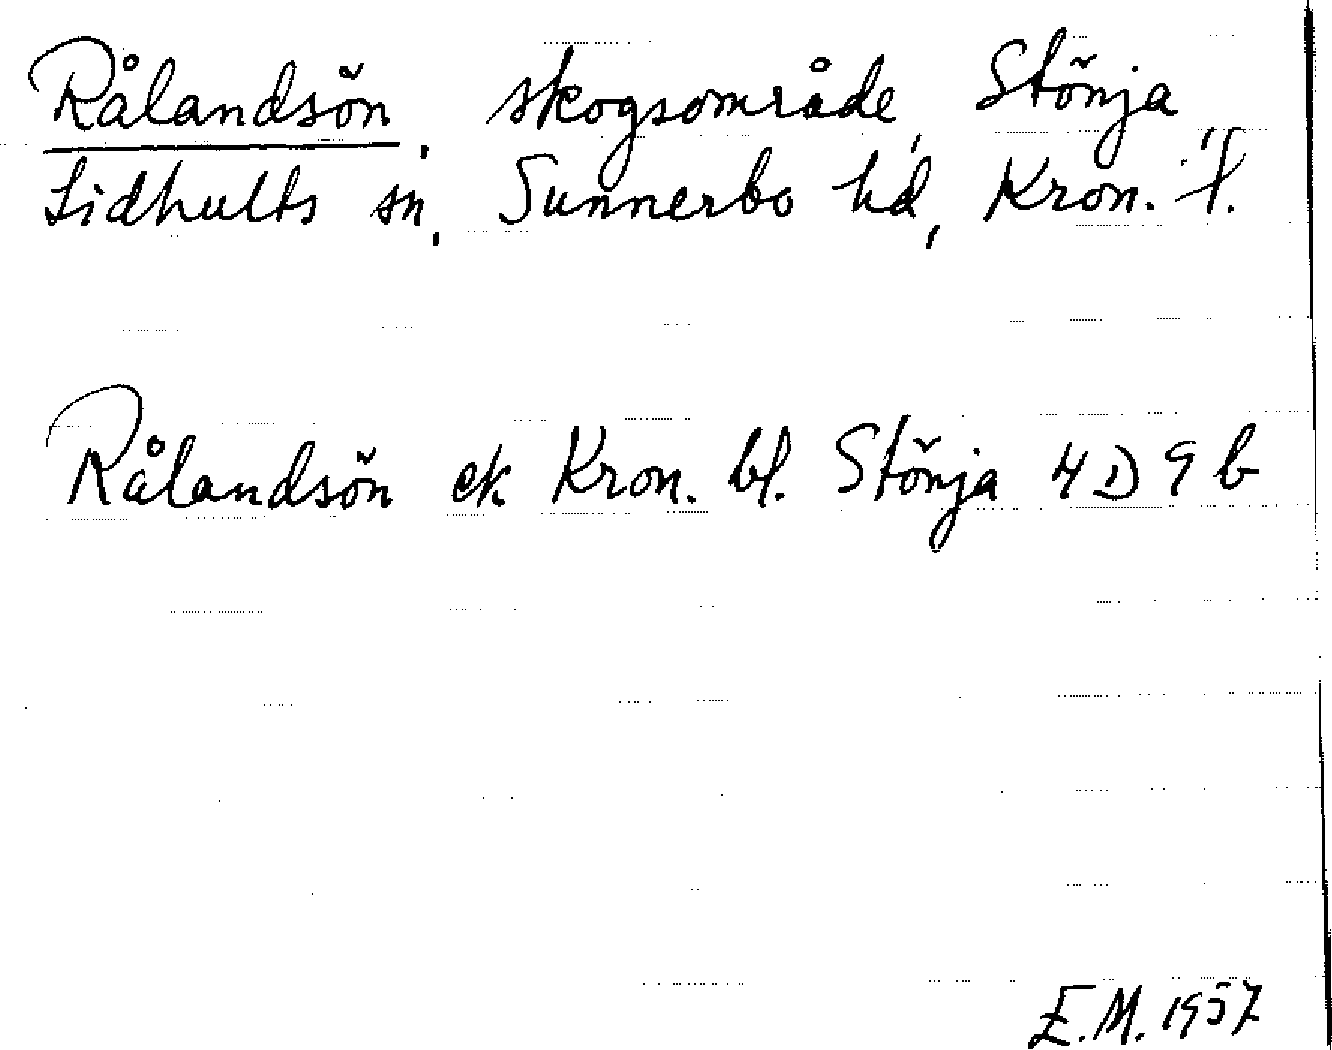 Rålandsön, skogsområde, Stönja,
Lidhults sn, Sunnerbo hd, Kron. l.
Rålandsön ek Kron. bl. Stönja 4D9b
E.M. 1957